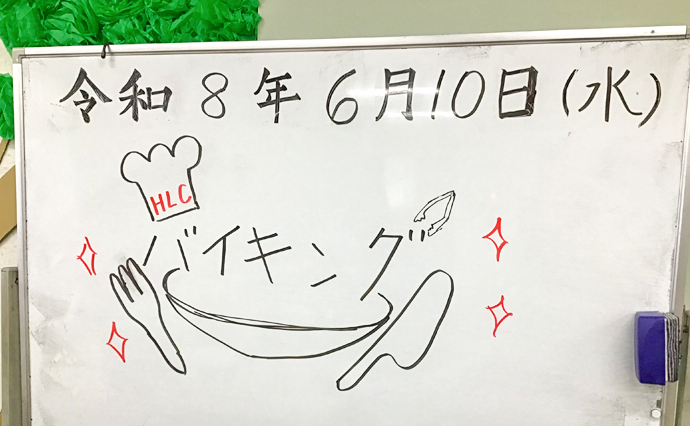 令和8年6月10日(水)
HLC
バイキング